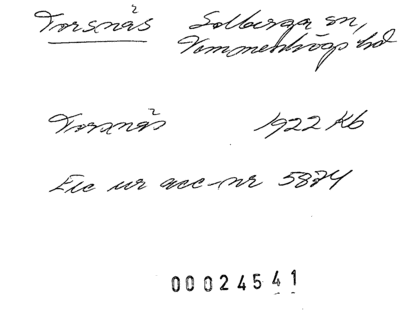 Torsnäs Solberga sn,
Vemmenhögs hd
Torsnäs 1922 Kb
Exc ur acc-nr 5874
00024541